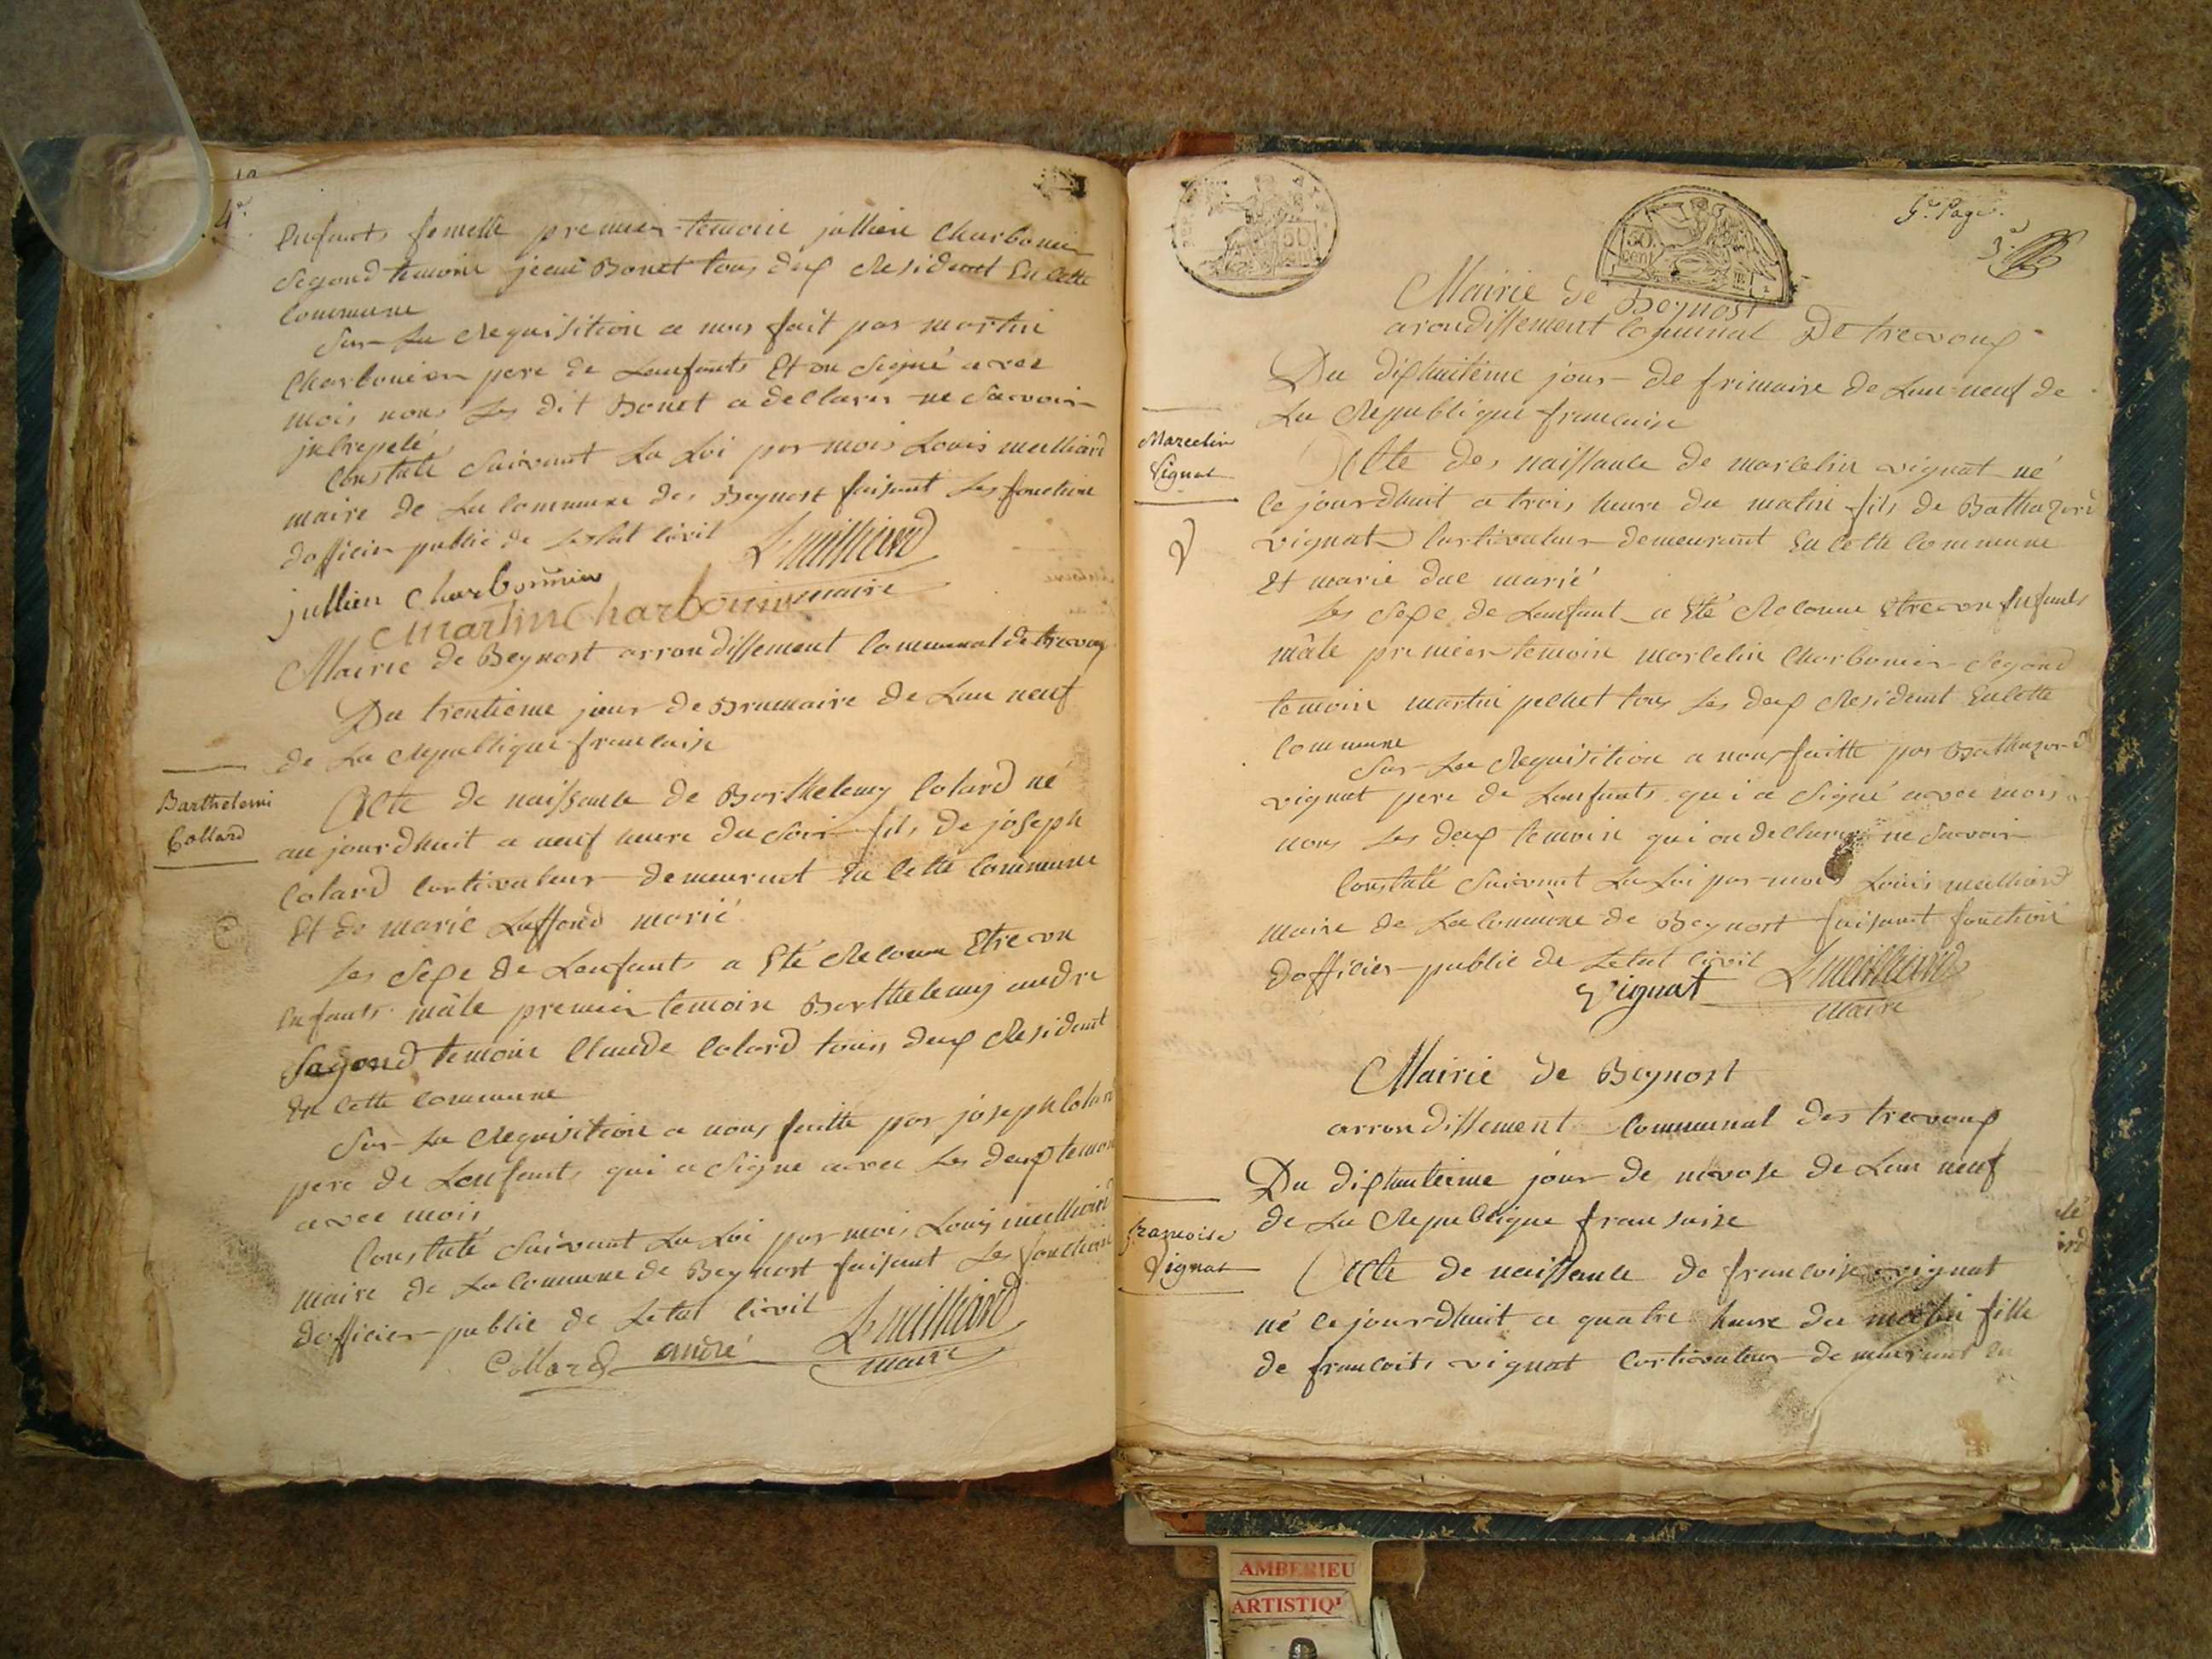 4e.
Enfants femelle premier temoin jullien Charbonier
segond temoin jean Bonet tous deux Resident En cette
Commune
Sur La Requisition a nous fait par martin
Charbonier pere de Lenfants Et on Signé avec
mois nons Les dit Bonet a declarer ne Savoir
jntrepelé
Constaté Suivant La Loi par mois Louis meilliard
maire de La Commune des Beynost faisant Les fonction
dofficier public de Letat Civil L meilliard
jullien Charbonnier maire
Martin Charbonier
Mairie de Beynost arrondissement Communal de trevoux
Du trentieme jour de Brumaire de Lan neuf
de La Republique francaise
Barthelemi
Collard
Acte de naissance de Barthelemy Colard né
aujourdhuit a neuf heure du Soir fils de joseph
Colard Cortivateur demeurnet En Cette Commune
Et de marie Laffond marié
Les Sexe de Lenfants a Eté Reconu Etre un
Enfants mâle premier temoin Barthelemy andre
Segond temoin Claude Colard touis deux Resident
En Cette Commune
Sur La Requisition a nous faitte par joseph Colard
pere de Lenfants qui a Signe avec Les deux temoin
avec mois
Constaté Suivant La Loi par mois Louis meilliard
maire de La Commune de Beynost faisant Les fonction
dofficier public de Letat Civil L meilliard
Collard andré maire
5e. Page.
50
50
cent
Mairie de Beynost
arondissement Communal De trevoux
Du dixhuitieme jour de frimaire de Lan neuf de
La Republique francaise
Marcelin
Vignat
Acte des naissance de marcelin vignat né
Ce jourdhuit a trois heure du matin fils de Bathazard
vignat Cortivateur demeurant En Cette Commune
Et marie duc marié
Les Sexe de Lenfant a Eté Reconu Etre un Enfants
mâle premier temoin marcelin Charbonier Segond
temoin martin pelluet tous Les deux Resident En Cette
Commune
Sur La Requisition a nous faitte par Bathazard
vignat pere de Lenfants qui a Signé avec mois
nons Les deux temoin qui on declarer ne Savoir
Constaté Suivant La Loi par mois Louis meilliard
maire de La Commune de Beynost faisant fonction
dofficier public de Letat Civil L meilliard
Vignat maire
Mairie de Beynost
arrondissement Communal des trevoux
Du dixhuitieme jour de nivose de Lan neuf
de La Republique fransaise
francoise
Vignat
Acte de naissance de francoise vignat
né Ce jourdhuit a quatre heure du matin fille
de francoits vignat Cortivateur demeurant En
AMBERIEU
ARTISTIQ